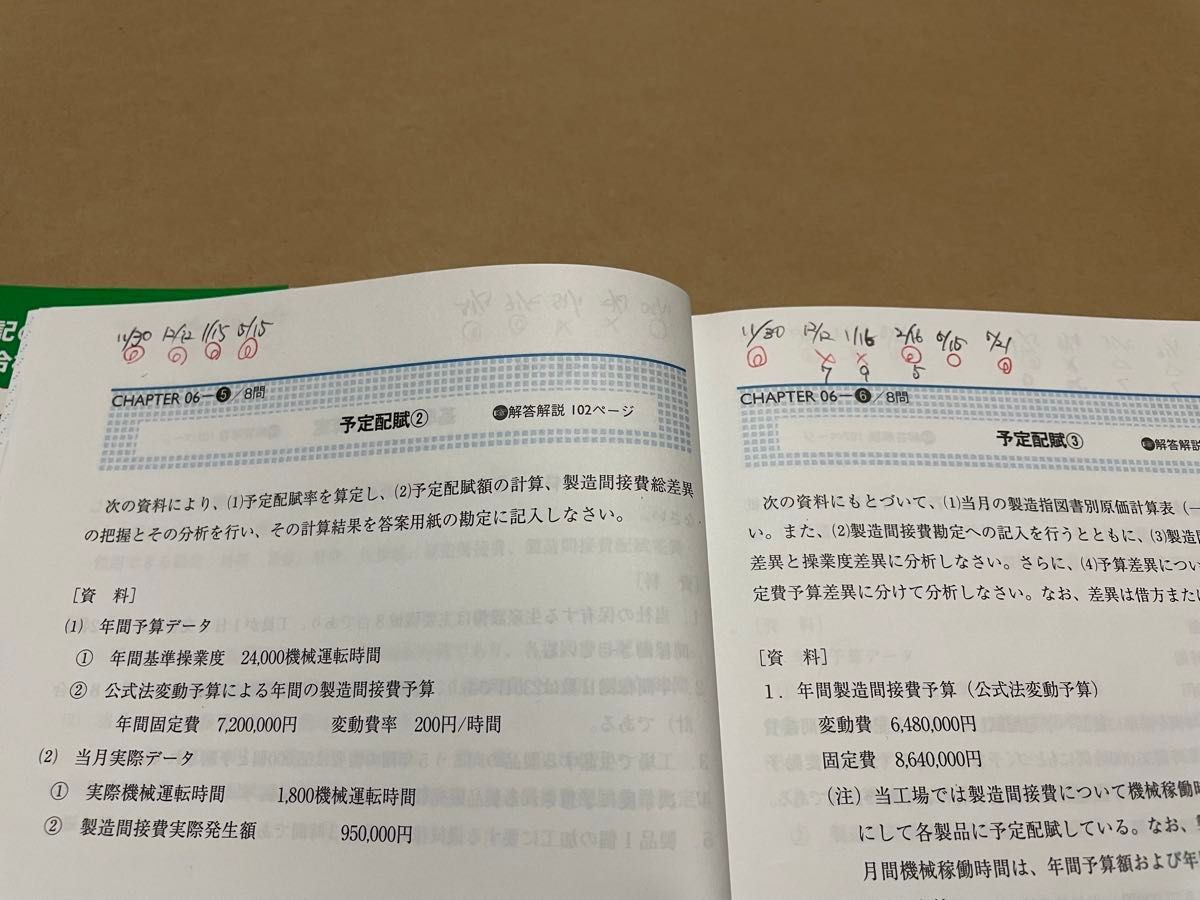 記の
合
11/30 12/12 1/15 5/15
CHAPTER 06－❺／8問
予定配賦②
解答解説 102ページ
次の資料により、(1)予定配賦率を算定し、(2)予定配賦額の計算、製造間接費総差異
の把握とその分析を行い、その計算結果を答案用紙の勘定に記入しなさい。
［資 料］
(1) 年間予算データ
① 年間基準操業度 24,000機械運転時間
② 公式法変動予算による年間の製造間接費予算
年間固定費 7,200,000円 変動費率 200円/時間
(2) 当月実際データ
① 実際機械運転時間 1,800機械運転時間
② 製造間接費実際発生額 950,000円
11/30 12/12 1/16 2/16 5/15
7 9 5
CHAPTER 06－❻／8問
予定配賦③
解答解説
次の資料にもとづいて、(1)当月の製造指図書別原価計算表（一
い。また、(2)製造間接費勘定への記入を行うとともに、(3)製造間
差異と操業度差異に分析しなさい。さらに、(4)予算差異につい
定費予算差異に分けて分析しなさい。なお、差異は借方また
［資 料］
1．年間製造間接費予算（公式法変動予算）
変動費 6,480,000円
固定費 8,640,000円
（注）当工場では製造間接費について機械稼働時
にして各製品に予定配賦している。なお、
月間機械稼働時間は、年間予算額および年